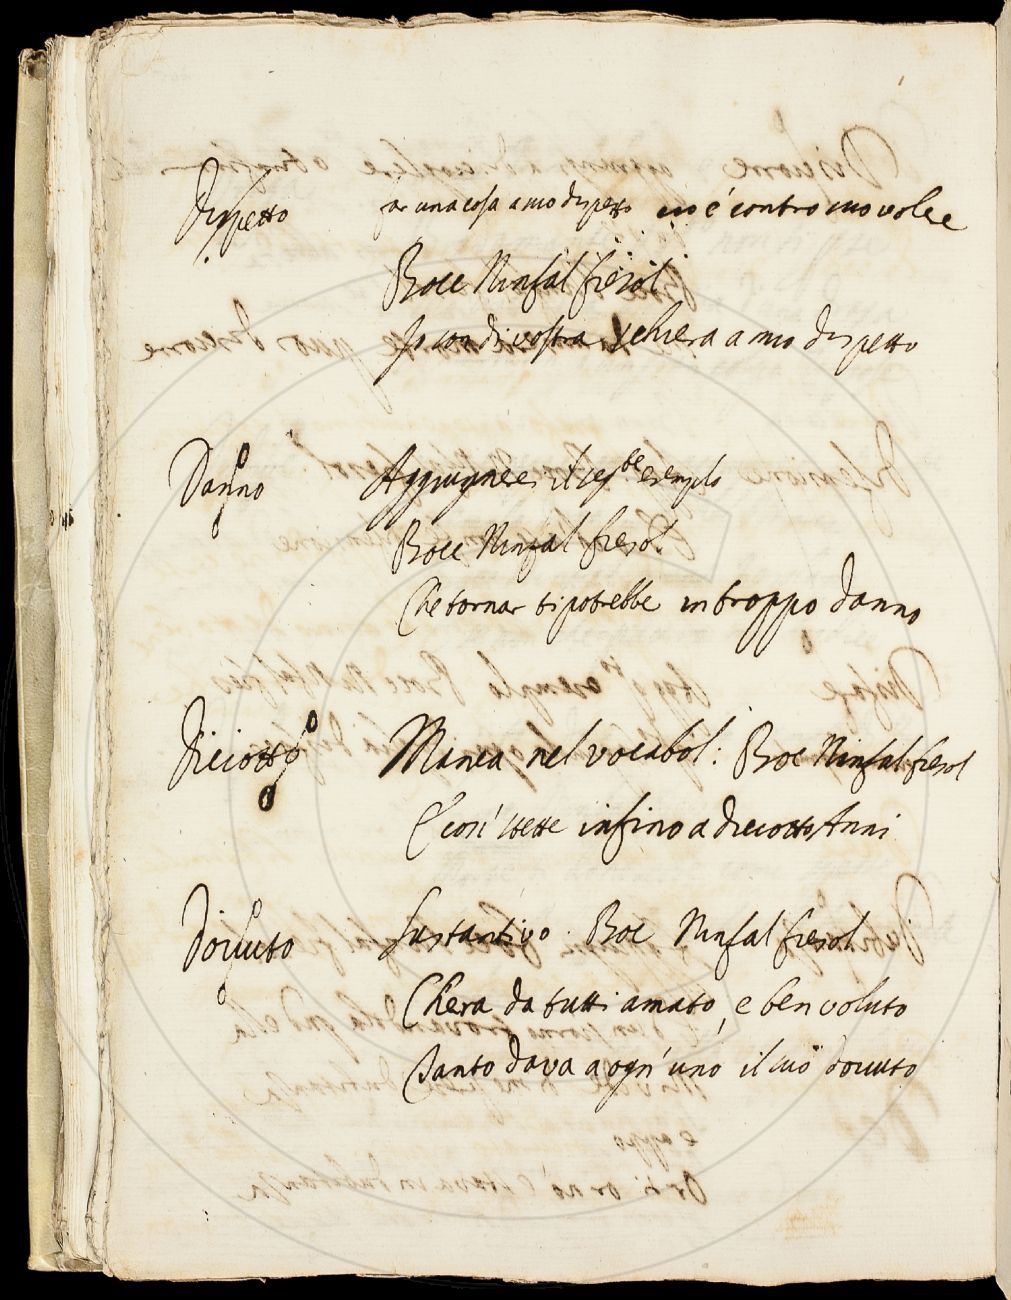 Dispetto ar una cosa a mio dispetto cio è contro mio volere
Bocc Ninfal fiesol
Io son di vostra schiera a mio dispetto
Danno Aggiugnere il seg.te esemplo
Bocc Ninfal fiesol
Che tornar ti potrebbe in troppo danno
Diciotto Manca nel vocabol: Boc Ninfal fiesol
E così stette infino a diciotto Anni
Dovuto sustantivo. Boc Ninfal fiesol
Ch'era da tutti amato, e ben voluto
Tanto dava a ogn'uno il suo dovuto